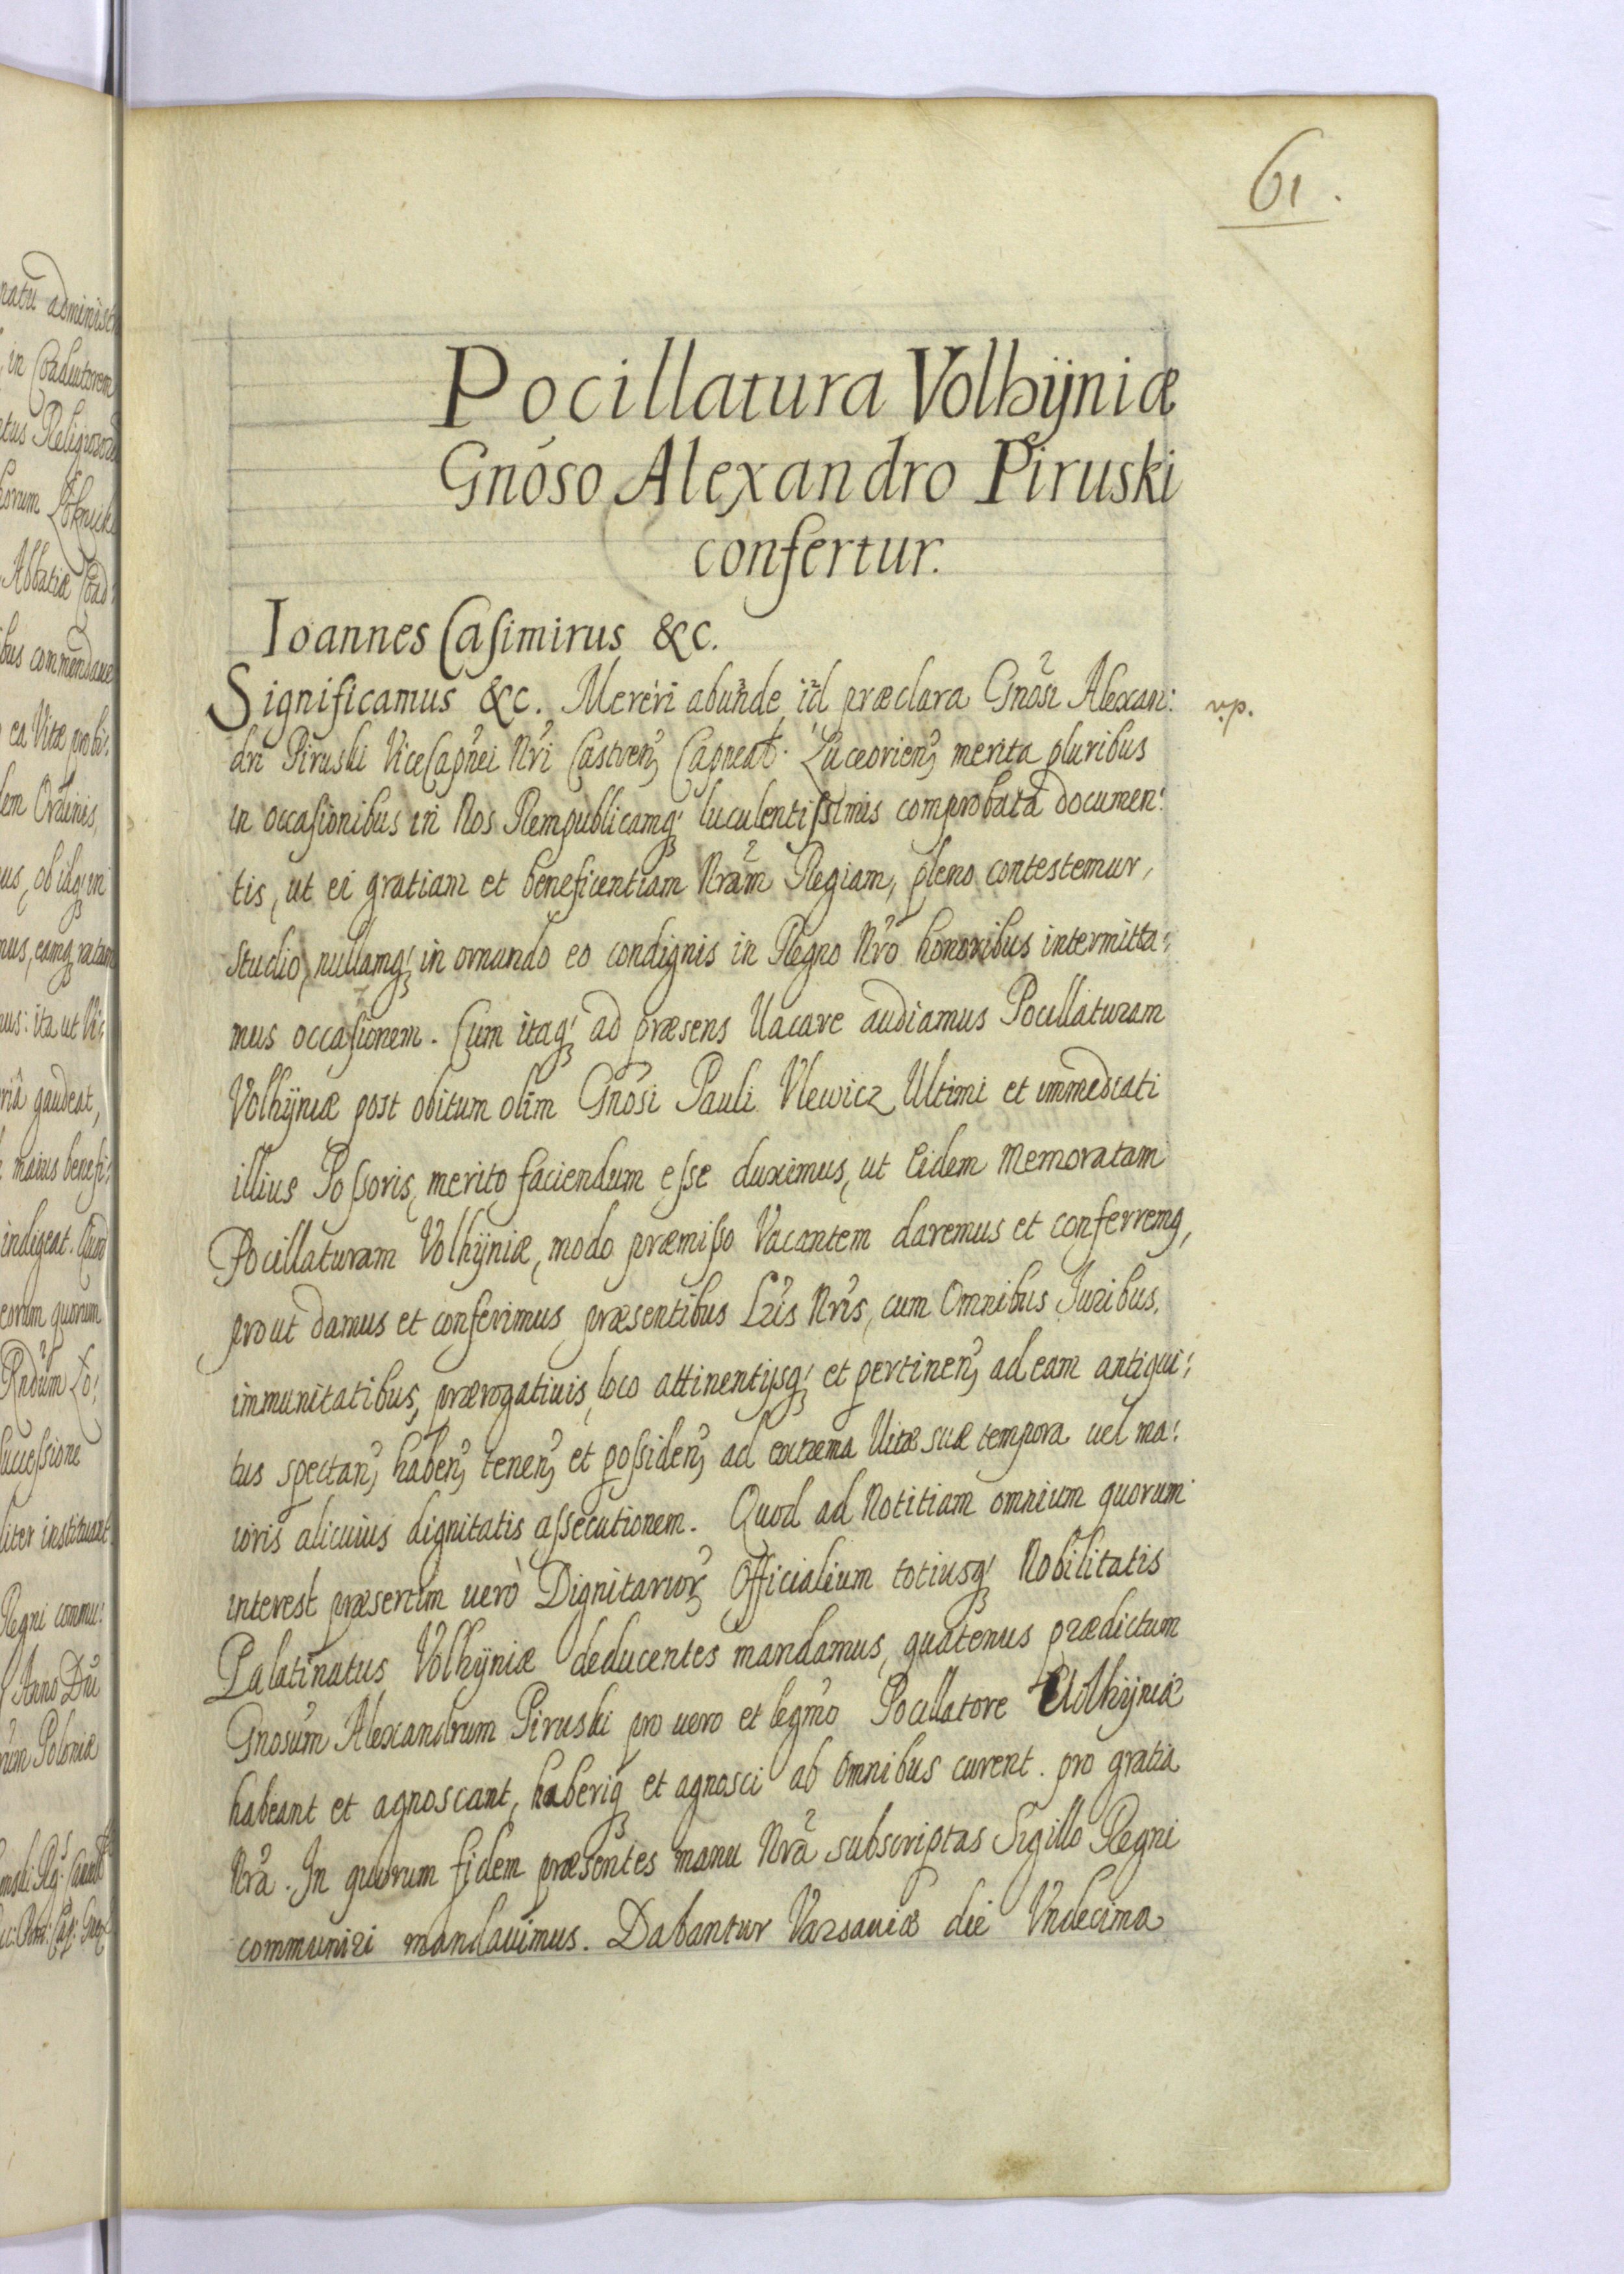 61.
Pocillatura Volhÿniæ
Gnóso Alexandro Piruski
confertur.
Ioannes Casimirus &c.
Significamus &c. Mereri abunde id præclara Gnosi Alexan: v.p.
dri Piruski ViceCapnei Nri Castren, Capneat. Luceorien, merita pluribus
in occasionibus in Nos Rempublicamq; luculentissimis comprobata documen:
tis, ut ei gratiam et beneficentiam Nram Regiam, pleno contestemur,
studio, nullamq; in ornando eo condignis in Regno Nro honoribus intermitta:
mus occasionem. Cum itaq; ad præsens Uacare audiamus Pocillaturam
Volhÿniæ post obitum olim Gnosi Pauli Vlewicz Ultimi et immediati
illius Possoris, merito faciendum esse duximus, ut Eidem Memoratam
Pocillaturam Volhÿniæ, modo præmisso Vacantem daremus et conferremq,
prout damus et conferimus præsentibus Lris Nris, cum Omnibus Juribus,
immunitatibus, prærogatiuis, loco attinentijsq; et pertinen, ad eam antiqui:
tus spectan, haben, tenen, et possiden, ad extrema Uitæ suæ tempora uel ma:
ioris alicuius dignitatis assecutionem. Quod ad Notitiam omnium quorum
interest præsertim uerò Dignitarior, Officialium totiusq; Nobilitatis
Palatinatus Volhÿniæ deducentes mandamus, quatenus prædictum
Gnosum Alexandrum Piruski pro uero et legmo Pocillatore Uolhÿniæ
habeant et agnoscant, haberiq; et agnosci ab Omnibus curent. pro gratia
Nra. In quorum fidem præsentes manu Nra subscriptas Sigillo Regni
communiri mandauimus. Dabantur Varsauiæ die Vndecima